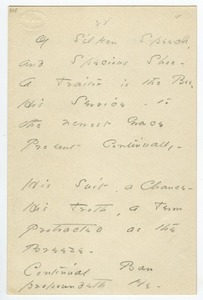 Of Silken Speech
and Specious Shoe -
A Traitor is the Bee,
His Service - to
the newest Grace
Present Continually -
His Suit, a Chance -
His Troth, a Term
protracted as the
Breeze -
Continual Ban
propoundeth He -